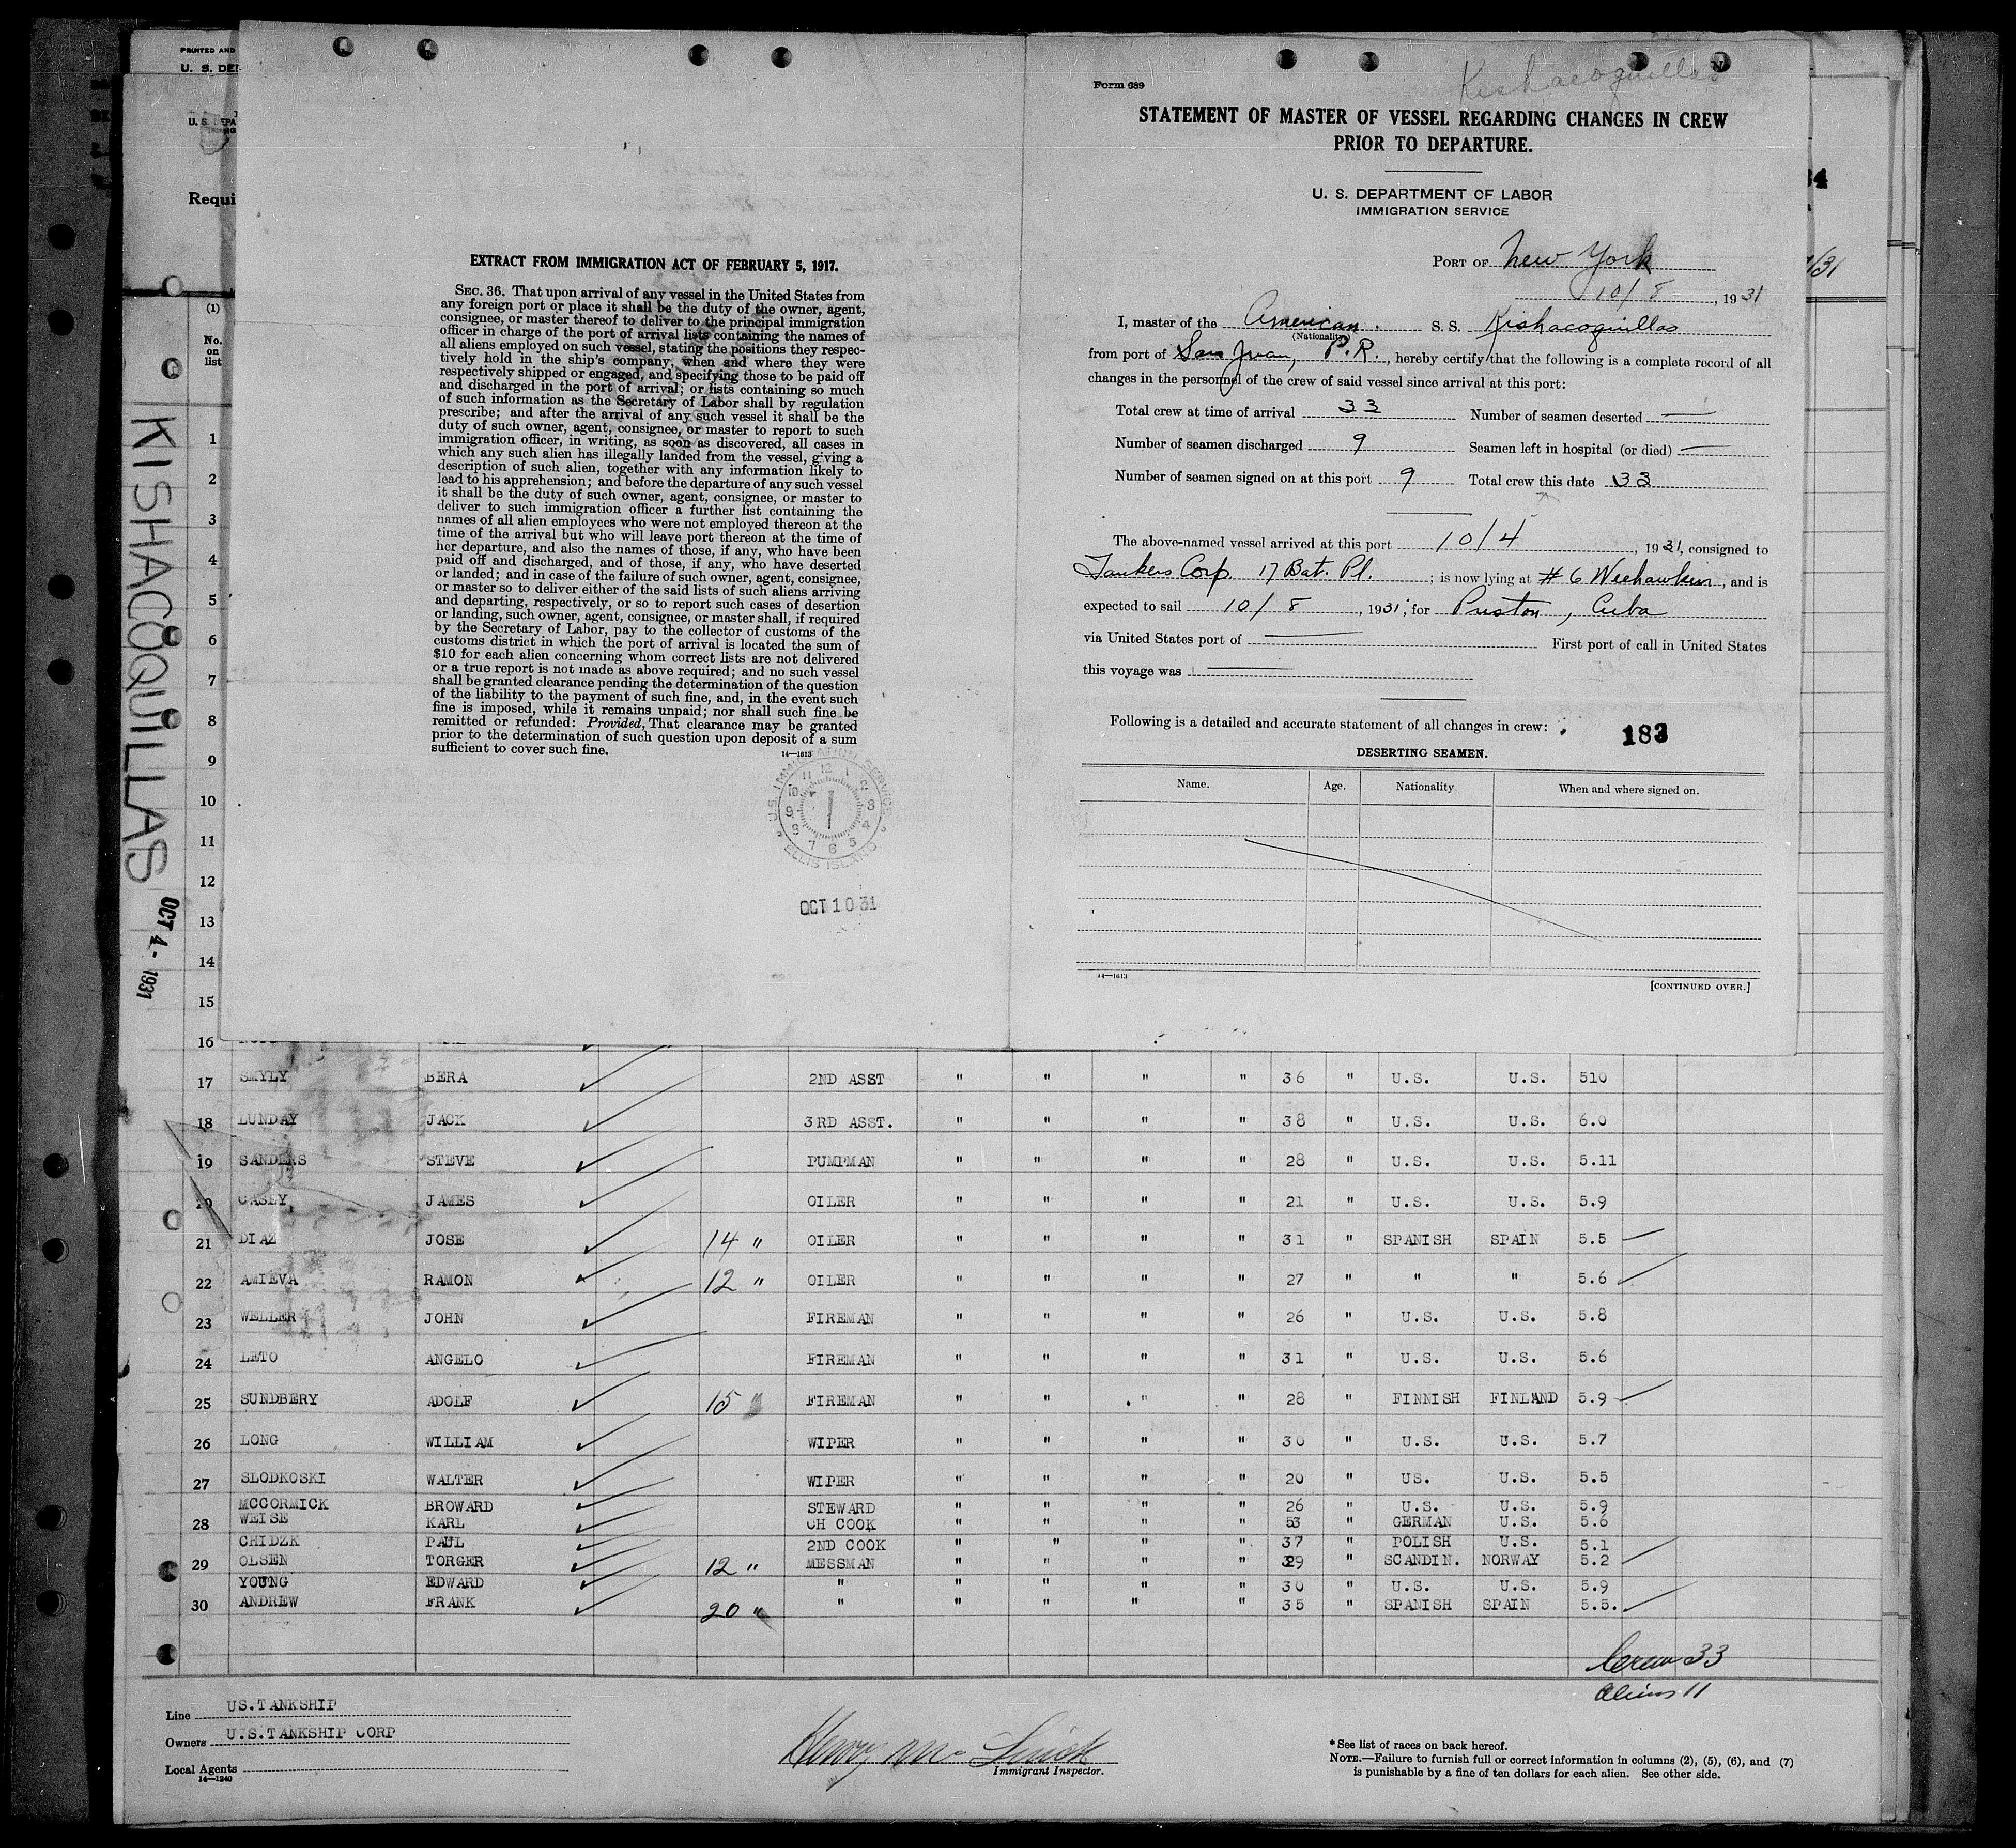 PRINTED AND
U. S. DE
U. S. DEPA
Requi
(1)
No.
on
list
1
2
3
4
5
6
7
8
9
10
11
12
13
14
15
16
KISHACOQUILLAS
OCT 4 - 1931
EXTRACT FROM IMMIGRATION ACT OF FEBRUARY 5, 1917.
SEC. 36. That upon arrival of any vessel in the United States from
any foreign port or place it shall be the duty of the owner, agent,
consignee, or master thereof to deliver to the principal immigration
officer in charge of the port of arrival lists containing the names of
all aliens employed on such vessel, stating the positions they respec-
tively hold in the ship's company, when and where they were
respectively shipped or engaged, and specifying those to be paid off
and discharged in the port of arrival; or lists containing so much
of such information as the Secretary of Labor shall by regulation
prescribe; and after the arrival of any such vessel it shall be the
duty of such owner, agent, consignee, or master to report to such
immigration officer, in writing, as soon as discovered, all cases in
which any such alien has illegally landed from the vessel, giving a
description of such alien, together with any information likely to
lead to his apprehension; and before the departure of any such vessel
it shall be the duty of such owner, agent, consignee, or master to
deliver to such immigration officer a further list containing the
names of all alien employees who were not employed thereon at the
time of the arrival but who will leave port thereon at the time of
her departure, and also the names of those, if any, who have been
paid off and discharged, and of those, if any, who have deserted
or landed; and in case of the failure of such owner, agent, consignee,
or master so to deliver either of the said lists of such aliens arriving
and departing, respectively, or so to report such cases of desertion
or landing, such owner, agent, consignee, or master shall, if required
by the Secretary of Labor, pay to the collector of customs of the
customs district in which the port of arrival is located the sum of
$10 for each alien concerning whom correct lists are not delivered
or a true report is not made as above required; and no such vessel
shall be granted clearance pending the determination of the question
of the liability to the payment of such fine, and, in the event such
fine is imposed, while it remains unpaid; nor shall such fine be
remitted or refunded: Provided, That clearance may be granted
prior to the determination of such question upon deposit of a sum
sufficient to cover such fine.
14—1613
U.S. IMMIGRATION SERVICE
12 1 2 3 4 5 6 7 8 9 10 11
ELLIS ISLAND
OCT 10 31
Kishacoquillas
Form 689
STATEMENT OF MASTER OF VESSEL REGARDING CHANGES IN CREW
PRIOR TO DEPARTURE.
U. S. DEPARTMENT OF LABOR
IMMIGRATION SERVICE
PORT OF New York
10/8, 1931
I, master of the American. S. S. Kishacoquillas
(Nationality)
from port of San Juan, P.R., hereby certify that the following is a complete record of all
changes in the personnel of the crew of said vessel since arrival at this port:
Total crew at time of arrival 33 Number of seamen deserted —
Number of seamen discharged 9 Seamen left in hospital (or died) —
Number of seamen signed on at this port 9 Total crew this date 33
The above-named vessel arrived at this port 10/4, 1931, consigned to
Tankers Corp. 17 Bat. Pl.; is now lying at #6 Weehawken, and is
expected to sail 10/8, 1931; for Preston, Cuba
via United States port of — First port of call in United States
this voyage was —
Following is a detailed and accurate statement of all changes in crew:
183
DESERTING SEAMEN.
Name. Age. Nationality When and where signed on.
14—1613
[CONTINUED OVER.]
34
/31
17 SMYLY BERA 2ND ASST " " " " 36 " U.S. U.S. 510
18 LUNDAY JACK 3RD ASST. " " " " 38 " U.S. U.S. 6.0
19 SANDERS STEVE PUMPMAN " " " " 28 " U.S. U.S. 5.11
20 CASEY, JAMES OILER " " " " 21 " U.S. U.S. 5.9
21 DIAZ JOSE 14 " OILER " " " " 31 " SPANISH SPAIN 5.5
22 AMIEVA RAMON 12 " OILER " " " " 27 " " " 5.6
23 WELLER JOHN FIREMAN " " " " 26 " U.S. U.S. 5.8
24 LETO ANGELO FIREMAN " " " " 31 " U.S. U.S. 5.6
25 SUNDBERY ADOLF 15 " FIREMAN " " " " 28 " FINNISH FINLAND 5.9
26 LONG WILLIAM WIPER " " " " 30 " U.S. U.S. 5.7
27 SLODKOSKI WALTER WIPER " " " " 20 " US. U.S. 5.5
MCCORMICK BROWARD STEWARD " " " " 26 " U.S. U.S. 5.9
28 WEISE KARL CH COOK " " " " 53 " GERMAN U.S. 5.6
CHIDZK PAUL 2ND COOK " " " " 37 " POLISH U.S. 5.1
29 OLSEN TORGER 12 " MESSMAN " " " " 29 " SCANDIN. NORWAY 5.2
YOUNG EDWARD " " " " " 30 " U.S. U.S. 5.9
30 ANDREW FRANK 20 " " " " " " 35 " SPANISH SPAIN 5.5.
Crew 33
Aliens 11
Line US.TANKSHIP
Owners U.S.TANKSHIP CORP
Local Agents
14—1240
Henry Mc
Immigrant Inspector.
* See list of races on back hereof.
NOTE.—Failure to furnish full or correct information in columns (2), (5), (6), and (7)
is punishable by a fine of ten dollars for each alien. See other side.